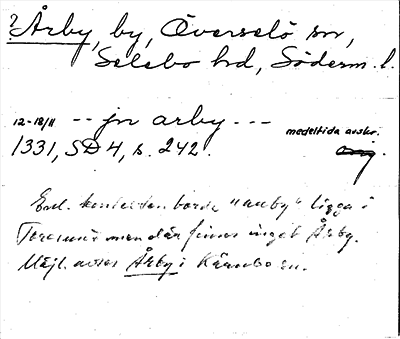 ?Årby, by, Överselö sn,
Selebo hd, Söderm. l.
12-18/11 -- jn arby ---
medeltida avskr.
1331, SD 4, s. 242. orig.
Enl. kontexten borde "arby" ligga i
Toresund men där finns inget Årby.
Möjl. avses Årby i Kärnbo sn.